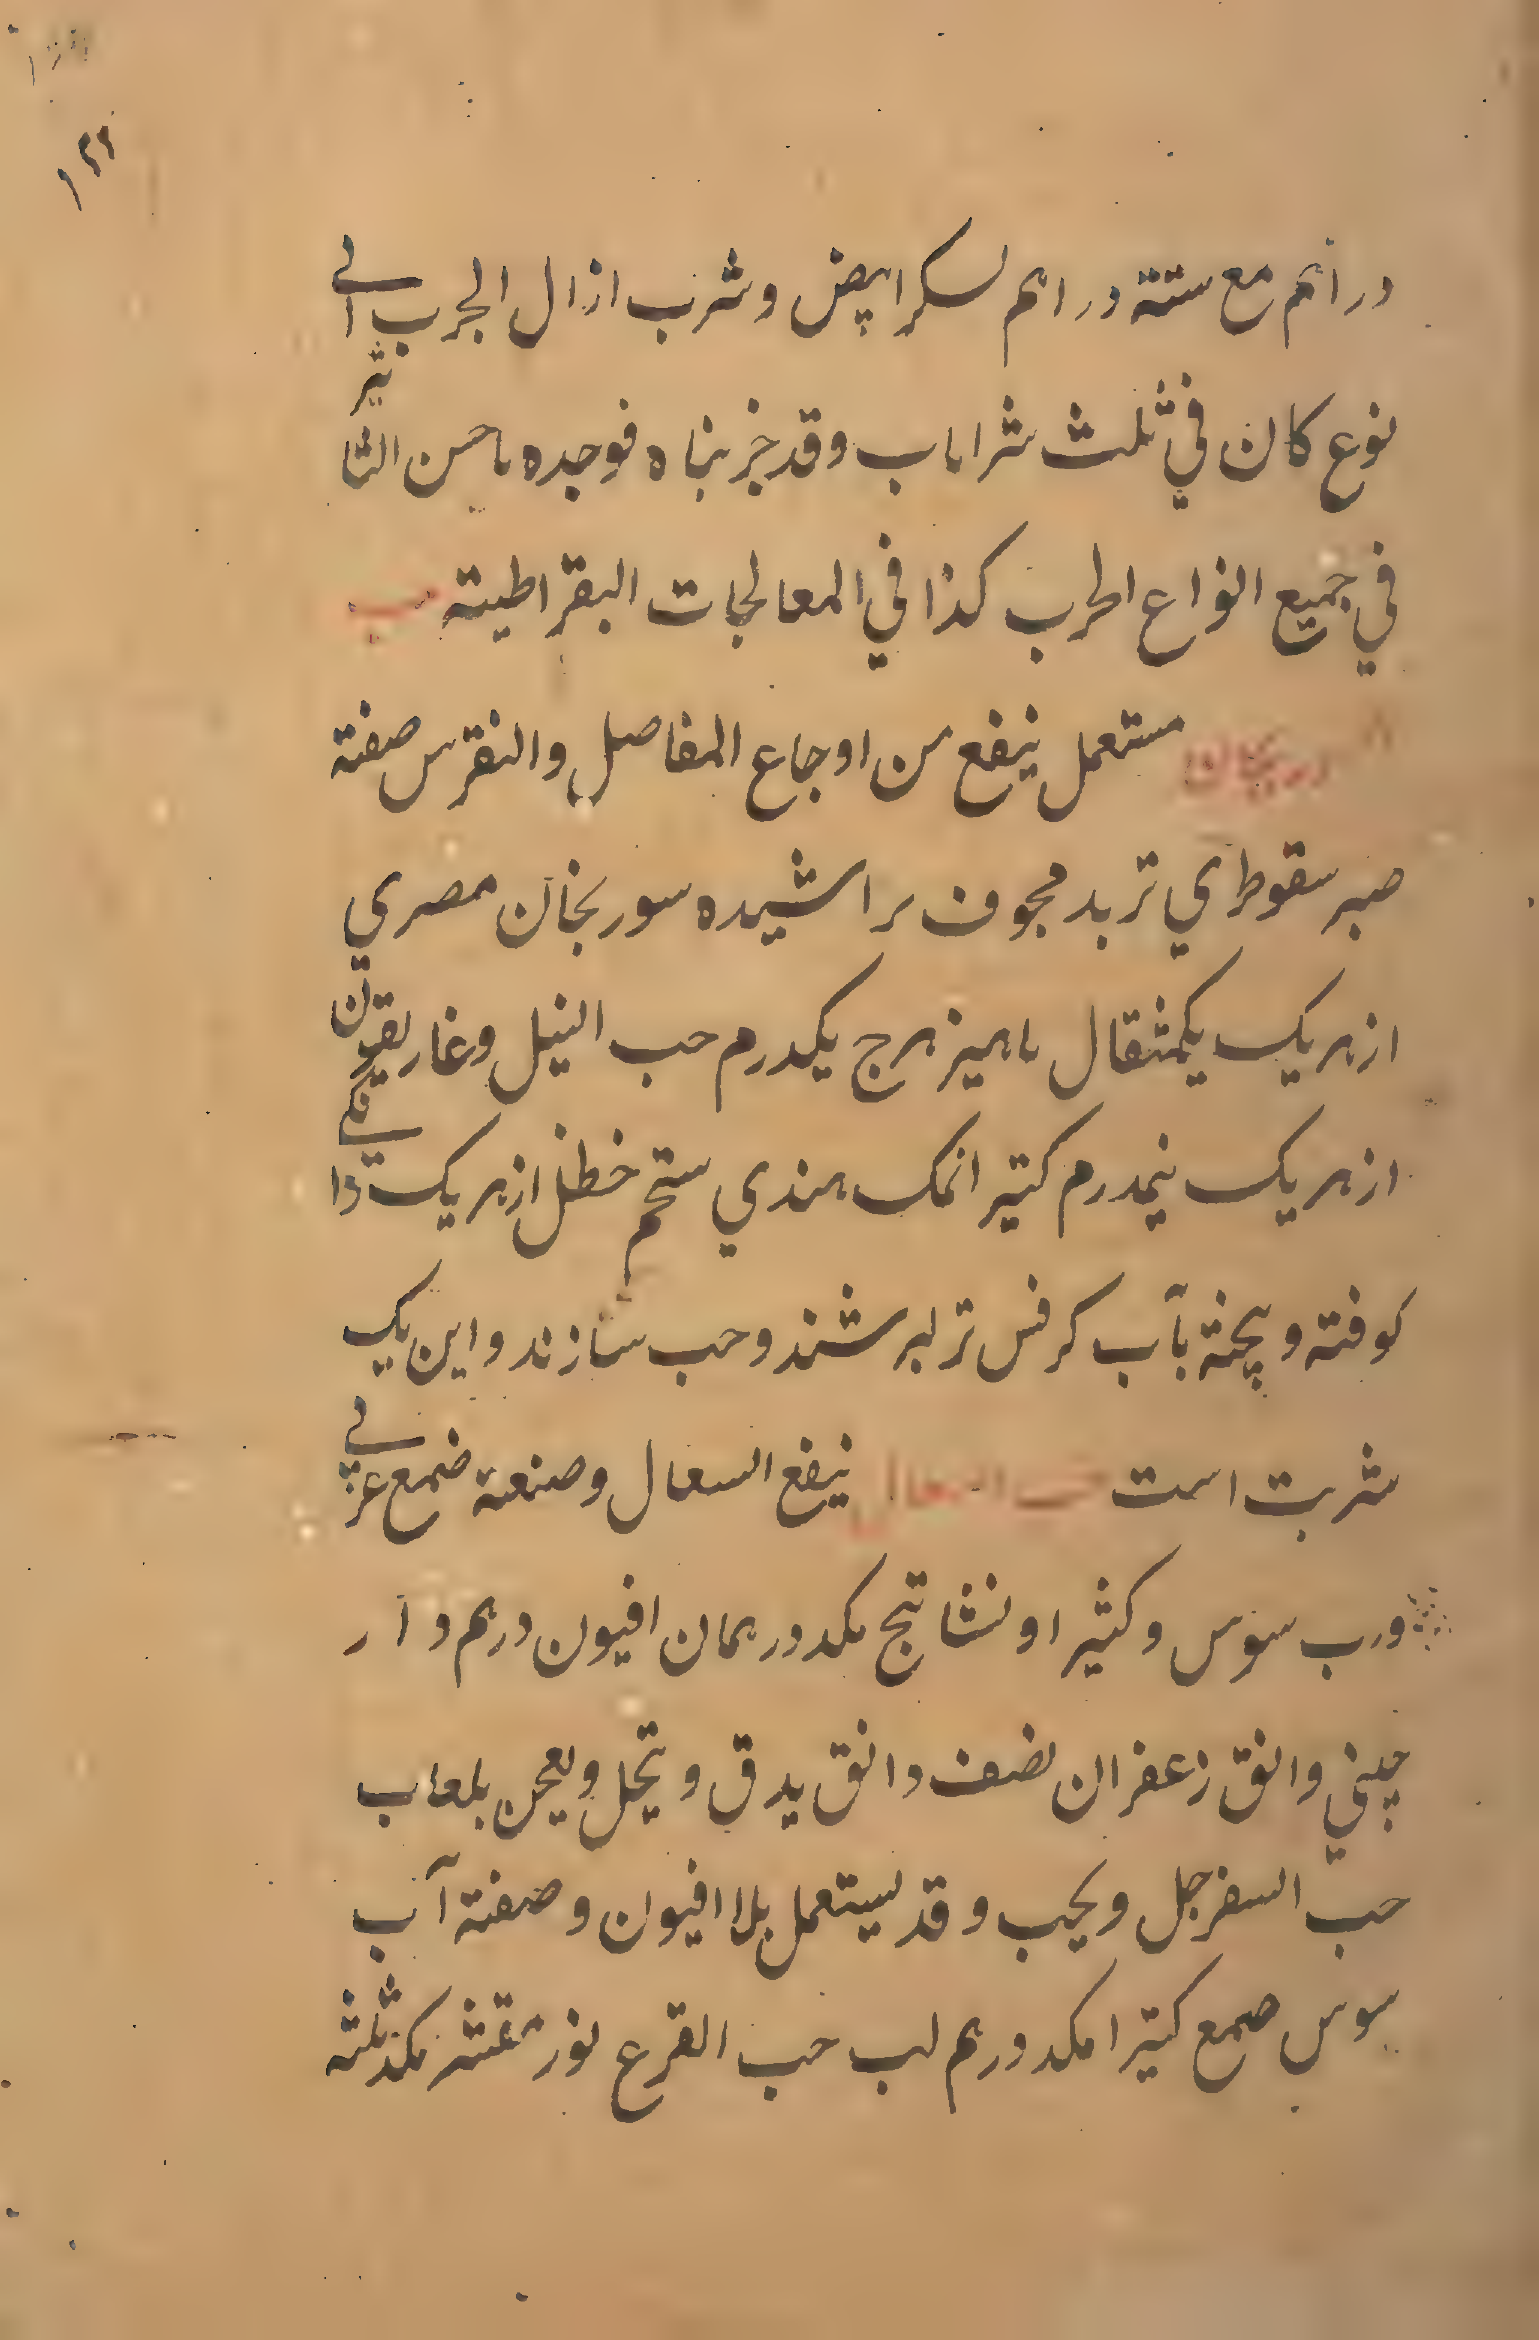 دراهم مع ستة دراهم سكر ابيض وشرب ازال الجرب الى
نوع كان في ثلث شرابات وقد جربناه فوجده باحسن التاثير
في جميع انواع الجرب كذا في المعالجات البقراطية حب
السورنجان مستعمل ينفع من اوجاع المفاصل والنقرس صفته
صبر سقوطري تربد مجوف تراشيده سورنجان مصري
از هر يک يکمثقال ماهيزهرج يکدرم حب النيل وغاريقون
از هر يک نيمدرم کتيرا نمک هندي شحم حنظل از هر يک دانکي
کوفته و پخته بآب کرفس تر بسرشند و حب سازند و اين يک
شربت است حب السعال ينفع السعال وصنعة صمغ عربي
ورب سوس وکثيرا ونشاستج مکد درهمان افيون درهم دار
چيني دانق زعفران نصف دانق يدق وينخل ويعجن بلعاب
حب السفرجل ويحبب وقد يستعمل بلا افيون وصفته آب
سوس صمغ کتيرا مکد درهم لب حب القرع لوز مقشر مکد ثلثه